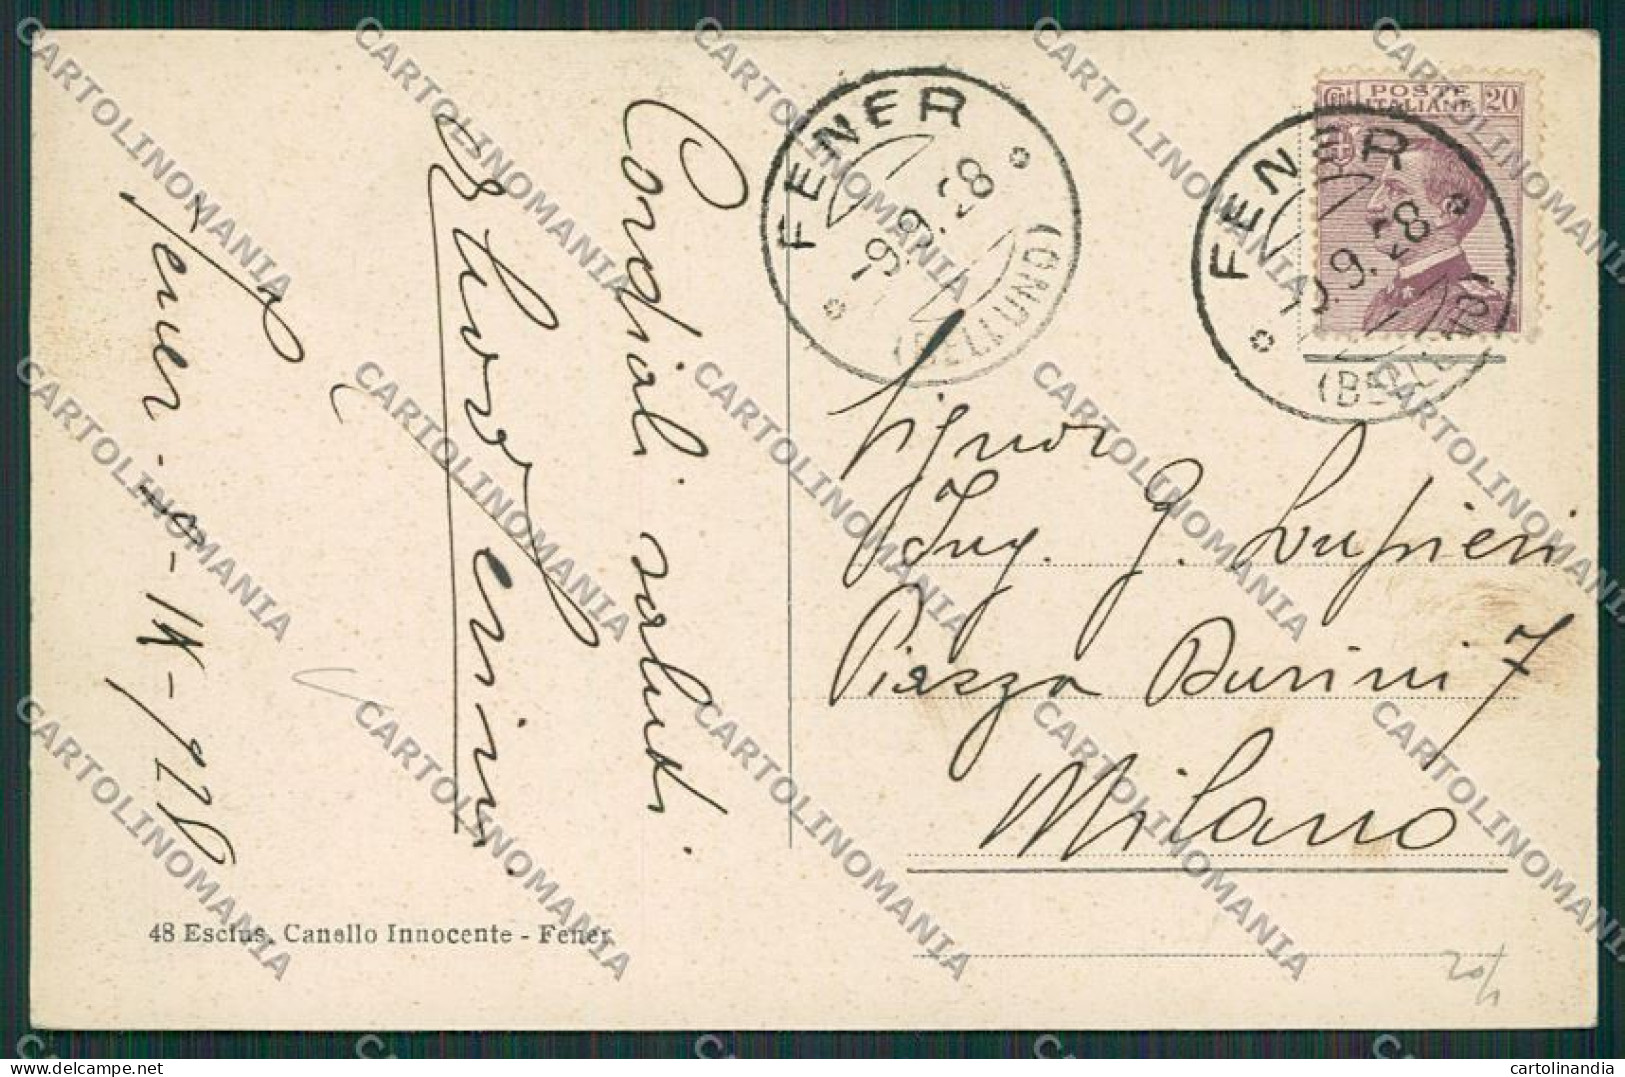 Fener - 10 - IX - 928
Cordiali saluti
48 Esclus. Canello Innocente - Fener
FENER
9.9.28
(BELLUNO)
Cent POSTE 20
ITALIANE
FENER
9.9.28
(BELLUNO)
Signor
Ing. G. Lupieri
Piazza Durini 7
Milano
20/1
CARTOLINOMANIA
cartolinandia